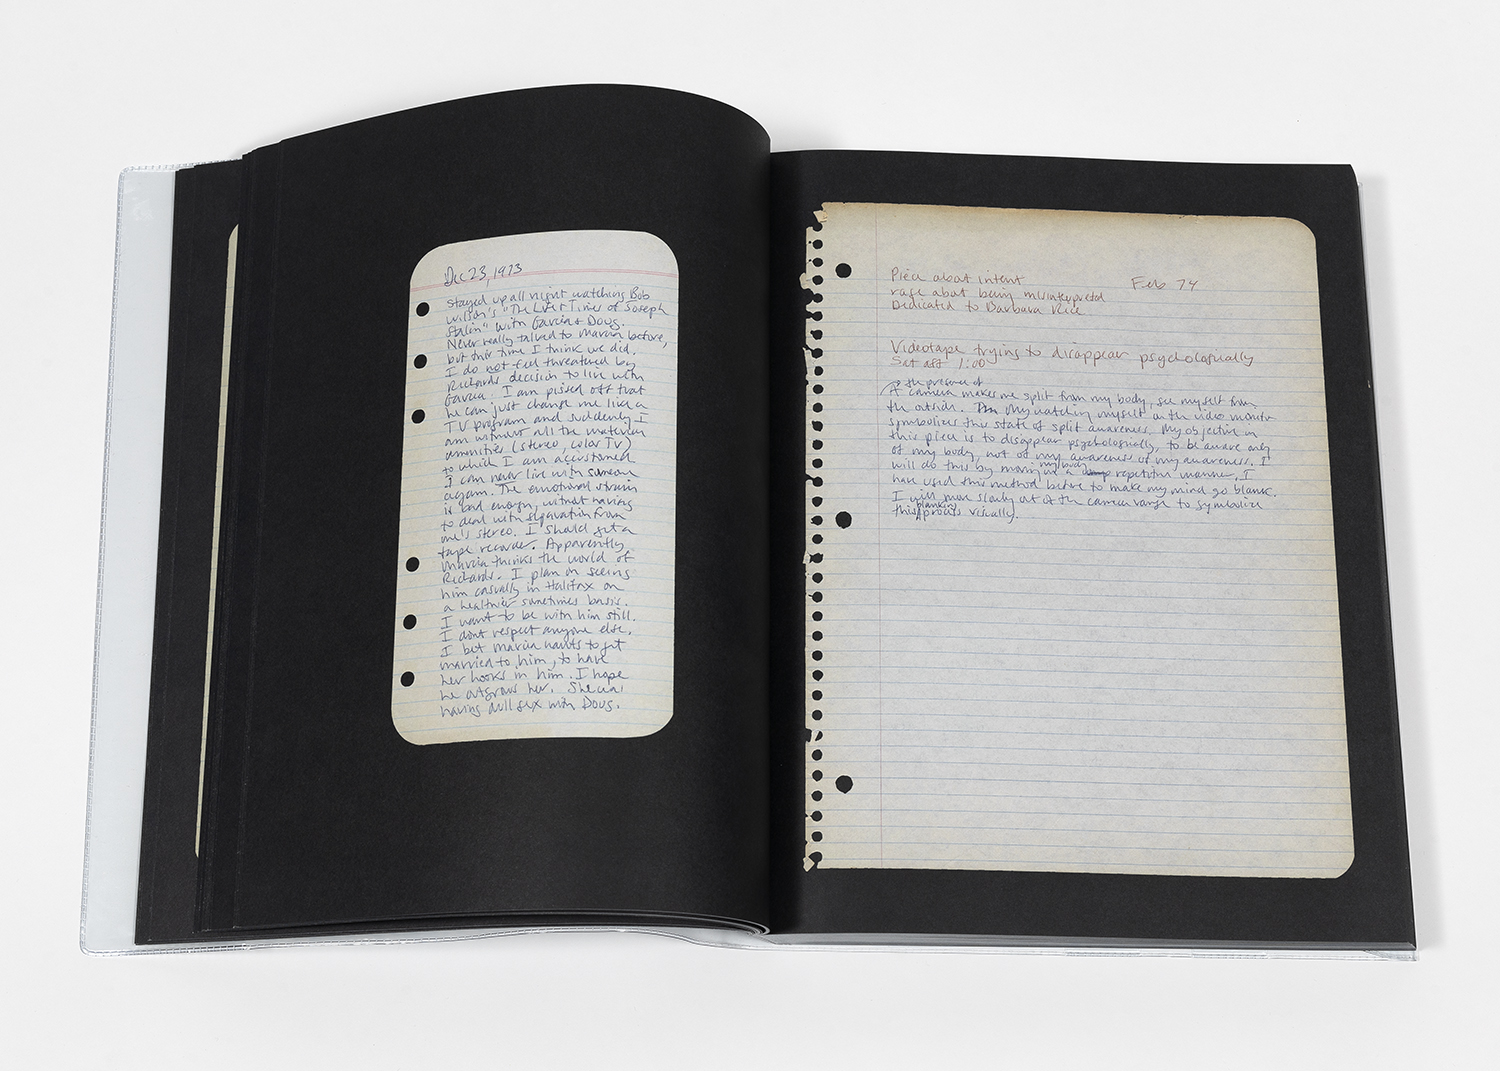 Dec 23, 1973
stayed up all night watching Bob
Wilson's "The Life & Times of Joseph
Stalin" with Garcia & Doug.
Never really talked to Marcia before,
but this time I think we did.
I do not feel threatened by
Richards decision to live with
Garcia. I am pissed off that
he can just change me like a
TV program and suddenly I
am without all the material
amenities (stereo, color TV)
to which I am accustomed
I can never live with someone
again. The emotional strain
is bad enough, without having
to deal with separation from
one's stereo. I should get a
tape recorder. Apparently
Marcia thinks the world of
Richards. I plan on seeing
him casually in Halifax on
a healthier sometimes basis.
I want to be with him still.
I dont respect anyone else.
I bet Marcia wants to get
married to him, to have
her hooks in him. I hope
he outgrows her. She
having dull sex with Doug.
Piece about intent
rage about being misinterpreted
Dedicated to Barbara Rice
Feb 74
Videotape trying to disappear psychologically
Sat aft 1:00
the presence of
A camera makes me split from my body, see myself from
the outside. My watching myself on the video monitor
symbolizes this state of split awareness. My objective in
this piece is to disappear psychologically, to be aware only
of my body, not of my awareness of my awareness. I
will do this by moving my body in a repetitive manner. I
have used this method before to make my mind go blank.
I will move slowly out of the camera range to symbolize
this blanking process visually.